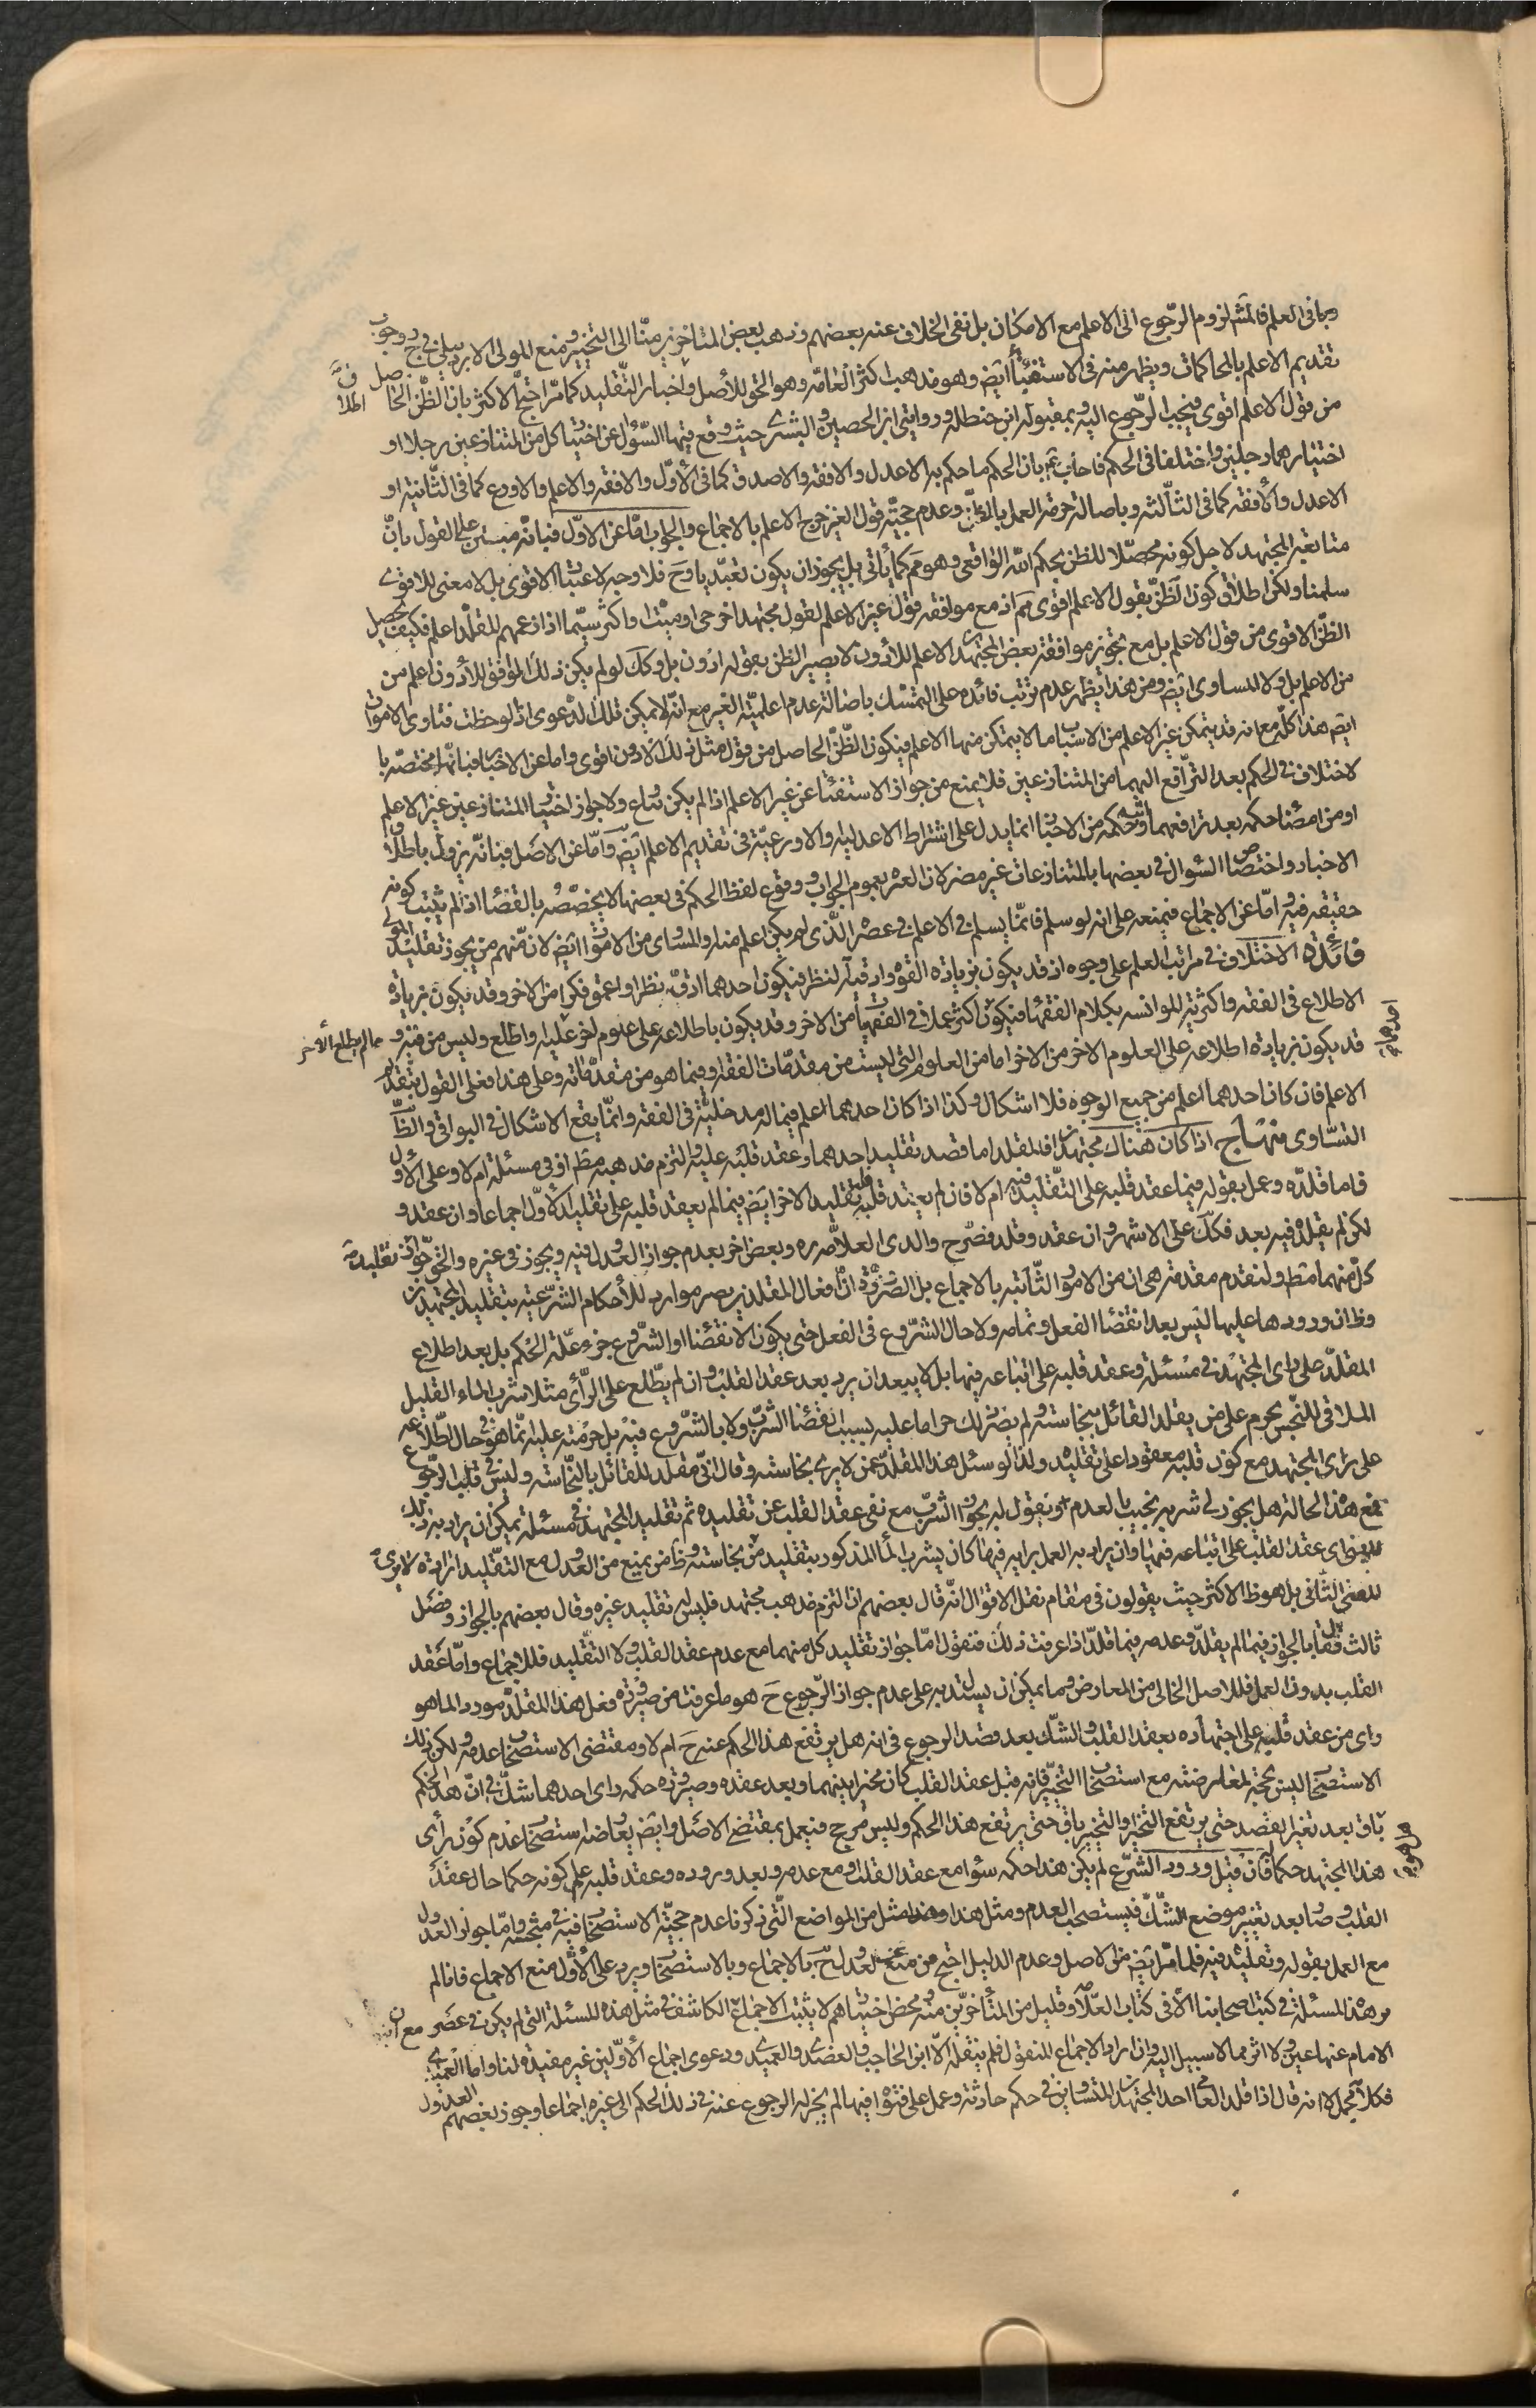 وبما فى العلم فالمش لزوم الرّجوع الى الاعلم مع الامكان بل نفى الخلاف عنه بعضهم وذهب بعض المتاخرين منّا الى التخيير ومنع المولى الاردبيلى فى ح وجوب
تقديم الاعلم بالمحاكمات ويظهر منه فى الاستفتاء ايض وهو مذهب اكثر العامّه وهو الحق للأصل واخبار التّقليد كما مرّ احتجّ الاكثر بان الظنّ الحاصل
من قول الاعلم اقوى فيجب الرّجوع اليه وبمقبوله ابن حنطله وروايتى ابن الحصين والبشرى حيث وقع فيها السّؤال عن اختيار كل من المتنازعين رجلا او
اختيارهما رجلين واختلفا فى الحكم فاجاب ع بان الحكم ما حكم به الاعدل والافقه والاصدق كما فى الأوّل والافقه والاعلم والاورع كما فى الثّانية او
الاعدل والأفقه كما فى الثّالثه وباصالة حرمة العمل بالظنّ وعدم حجيّة قول الغير خرج الاعلم بالاجماع والجواب امّا عن الاوّل فبانّه مبتن على القول بانّ
متابعة المجتهد لاجل كونه محصّلا للظن بحكم اللّه الواقعى وهو مم كما يأتى بل يجوز ان يكون تعبّديا وح فلا وجه لاعتبار الاقوى بل لا معنى للاقوى
سلمنا ولكن اطلاق كون الظنّ بقول الاعلم اقوى مم اذ مع موافقه قول غير الاعلم لقول مجتهد اخر حى او ميّت او اكثر سيّما اذا زعمهم المقلّد اعلم فكيف يحصل
الظنّ الاقوى من قول الاعلم بل مع تجويز موافقة بعض المجتهدين الاعلم للأدون لا يصير الظن بقوله ادون بل وكك لو لم يكن ذلك الموفق للأدون اعلم من
من الاعلم بل ولا المساوى ايض ومن هذا يظهر عدم ترتب فائده على التمسّك باصالة عدم اعلميّة الغير مع انّه لا يمكن تلك الدعوى اذا لوحظت فتاوى الاموات
ايض هذا كلّه مع انه قد يتمكن غير الاعلم من الاسباب ما لا يتمكن منها الاعلم فيكون الظّنّ الحاصل من قول مثل ذلك الادون اقوى واما عن الاخبار فبانّها مختصّه با
لاختلاف فى الحكم بعد الترّافع اليهما من المتنازعين فلا يمنع من جواز الاستفتاء عن غير الاعلم اذا لم يكن نزاع ولا جواز اختيار المتنازعين غير الاعلم
او من امضاء حكمه بعد ترافعهما وحكمه من الاخبار انما يدل على اشتراط الاعدليه والاورعيّة فى تقديم الاعلم ايض وامّا عن الاصل فبانّه يزول باطلاق
الاخبار واختصاص السّوال فى بعضها بالمتنازعات غير مضر لان العبره بعموم الجواب ووقوع لفظ الحكم فى بعضها لا يخصّصه بالقضاء اذ لم يثبت كونه
حقيقه فيه وامّا عن الاجماع فبمنعه على انه لو سلم فانّما يسلم فى الاعلم فى عصر الّذى لم يكن اعلم منه او المساوى من الاموات ايض لان منهم من يجوز تقليد
فائدة الاختلاف فى مراتب العلم على وجوه اذ قد يكون بزياده القوه او دقة النظر فيكون احدهما ادقّ نظرا واعمق فكرا من الاخر وقد يكون بزيادة
الاطلاع فى الفقه واكثريّة الموانسه بكلام الفقهاء فيكون اكثر عملا فى الفقهيات من الاخر وقد يكون باطلاعه على علوم اخر عليه واطلع وليس من فيه و مما لم يطلع الأخر
قد يكون بزيادة اطلاعه على العلوم الاخر من الاخر اما من العلوم التى ليست من مقدمات الفقه او فيما هو من مقدماته وعلى هذا فعلى القول بتقديم
الاعلم فان كان احدهما اعلم من جميع الوجوه فلا اشكال وكذا اذا كان احدهما اعلم فيما له مدخليّة فى الفقه وانّما يقع الاشكال فى البواقى والظّ
التسّاوى منهاج اذا كان هناك مجتهدان فالمقلد اما قصد تقليد احدهما وعقد قلبه عليه والتزم مذهبه مط او فى مسئلة ام لا وعلى الأول
فاما قلدّه وعمل بقوله فيما عقد قلبه على التّقليد فيه ام لا فان لم يعقد قلبه تقليد الاخر ايض فيما لم يعقد قلبه على تقليد الأوّل اجماعا وان عقد و
لكن لم يقلّده فيه بعد فكك على الاشهر وان عقد وقلد فصّرح والدى العلاّمه ره وبعض اخر بعدم جواز العدول فيه ويجوز فى غيره والحق جواز تقليد
كل منهما مط ولنقدم مقدمة هى ان من الامور الثّابته بالاجماع بل الضرورة انّ افعال المقلدين يصير موارد للأحكام الشّرعيّه بتقليد المجتهدين
وظ ان ورودها عليها ليس بعد انقضاء الفعل وتمامه ولا حال الشّروع فى الفعل حتى يكون الانقضاء او الشّروع جزء علّة الحكم بل بعد اطلاع
المقلدّ على راى المجتهد فى مسئلة وعقد قلبه على اتباعه فيها بل لا يبعد ان يرد بعد عقد القلب وان لم يطّلع على الرّأى مثلا شرب الماء القليل
الملاقى للنّجس يحرم على من يقلد القائل بنجاسته ولم يصر ذلك حراما عليه بسبب انقضاء الشّرب ولا بالشّروع فيه بل حرمته عليه انّما هو فى حال اطّلاعه
على راى المجتهد مع كون قلبه معقودا على تقليده ولذا لو سئل هذا المقلّد عمّن لا يرى نجاسته وقال انّى مقلد للقائل بالنّجاسه وليس فى قلبه الرّجوع
فمع هذا الحالة هل يجوز لى شربه يجيب بالعدم ويقول له يجوز الشّرب مع نفى عقد القلب عن تقليده ثم تقليد المجتهد فى مسئلة يمكن ان يراد به ذلك
المعنى اى عقد القلب على اتباعه فيها وان يراد به العمل برايه فيها كان يشرب الماء المذكور بتقليد من بنجاسته وظ من يمنع من العدول مع التقّليد ارادة لا يرى
المعنى الثّانى بل هو ظ الاكثر حيث يقولون فى مقام نقل الاقوال انّه قال بعضهم ان التزم مذهب مجتهد فليس له تقليد غيره وقال بعضهم بالجواز وفصّل
ثالث فقال بالجواز فيما لم يقلدّ وعدمه فيما قلدّ اذا عرفت ذلك فنقول امّا جواز تقليد كل منهما مع عدم عقد القلب ولا التقّليد فللاجماع وامّا عقد
القلب بدون العمل فللاصل الخالى من المعارض وما يمكن ان يستدل به على عدم جواز الرّجوع ح هو ما عرفت من صيرورة فعل هذا المقلّد موردا لما هو
راى من عقد قلبه على اجتهاده بعقد القلب والشّك بعد قصد الرجوع فى انه هل يرتفع هذا الحكم عنه ح ام لا ومقتضى الاستصحاب عدمه ولكن ذلك
الاستصحاب ليس بحجة لمعارضته مع استصحاب التخيير فانه قبل عقد القلب كان مخيرا بينهما وبعد عقده وصيرورة حكمه راى احدهما شكّ فى انّ هذا الحكم
باق بعد تغير القصد حتى يرتفع التخيير او التخيير باق حتى يرتفع هذا الحكم وليس مرجح فيعمل بمقتضى الاصل وايض يعارضه استصحاب عدم كون رأى
هذا المجتهد حكما فان قبل ورود الشّرع لم يكن هذا حكمه سواء مع عقد القلب او مع عدمه وبعد وروده وعقد قلبه علم كونه حكما حال عقد
القلب وصار بعد تغيير موضع الشّكّ فيستصحب العدم ومثل هذا مثل من المواضع الّتى ذكرنا عدم حجيّة الاستصحاب فيه فى مبحثه وامّا جواز العدول
مع العمل بقوله وتقليده فيه فلما مرّ ايض من الاصل وعدم الدليل احتج من منع عن العدول ح بالاجماع وبالاستصحاب ويرد على الأوّل منع الاجماع فانا لم
نر هذه المسئلة فى كتب اصحابنا الاّ فى كتاب العلاّمه وقليل من المتأخرّين منه ومحض اختيارهم لا يثبت الاجماع الكاشف فى مثل هذه المسئلة التى لم يكن فى عصر
الامام عنها عين ولا اثر مما لا سبيل اليه وان اراد الاجماع المنقول فلم ينقله الاّ ابن الحاجب والعضدى والعميدى ودعوى اجماع الأوّلين غير مفيده لنا واما العميدى
فكلامه مجمل لانه قال اذا قلد العامى احد المجتهدين المتساويين فى حكم حادثه وعمل على فتواه فيها لم يجز له الرجوع عنه فى ذلك الحكم الى غيره اجماعا وجوز بعضهم العدول